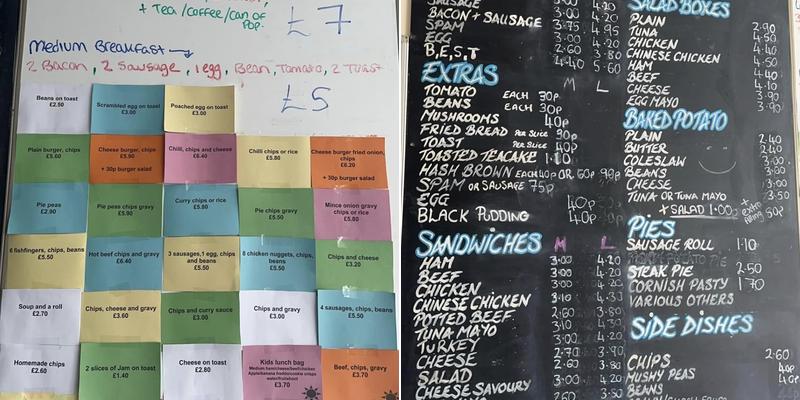 + Tea/Coffee/Can of Pop.
£7
Medium Breakfast →
2 Bacon, 2 Sausage, 1 egg, Bean, Tomato, 2 Toast
£5
Beans on toast
£2.50
Scrambled egg on toast
£3.00
Poached egg on toast
£3.00
Plain burger, chips
£5.60
Cheese burger, chips
£5.90
+ 30p burger salad
Chilli, chips and cheese
£6.40
Chilli chips or rice
£5.80
Cheese burger fried onion, chips
£6.20
+ 30p burger salad
Pie peas
£2.90
Pie peas chips gravy
£5.90
Curry chips or rice
£5.80
Pie chips gravy
£5.50
Mince onion gravy chips or rice
£5.80
6 fishfingers, chips, beans
£5.50
Hot beef chips and gravy
£6.40
3 sausages, 1 egg, chips and beans
£5.50
8 chicken nuggets, chips, beans
£5.50
Chips and cheese
£3.20
Soup and a roll
£2.70
Chips, cheese and gravy
£3.60
Chips and curry sauce
£3.00
Chips and gravy
£3.00
4 sausages, chips, beans
£5.50
Homemade chips
£2.60
2 slices of Jam on toast
£1.40
Cheese on toast
£2.80
Kids lunch bag
£3.70
Beef, chips, gravy
£3.70
SAUSAGE 3.00 4.20
BACON + SAUSAGE 3.75 4.95
SPAM 3.00 4.20
EGG 2.60 3.80
B,E,S,T 4.40 5.60
EXTRAS M L
TOMATO EACH 30p
BEANS EACH 30p
MUSHROOMS 40p
FRIED BREAD PER SLICE 90p
TOAST PER SLICE 40p
TOASTED TEACAKE 1.10
HASH BROWN EACH 40p OR 60p 90p
SPAM OR SAUSAGE 75p
EGG 40p
BLACK PUDDING 40p
SANDWICHES M L
HAM 3.00 4.20
BEEF 3.00 4.20
CHICKEN 3.00 4.20
CHINESE CHICKEN 3.10 4.30
POTTED BEEF 2.60 3.80
TUNA MAYO 3.10 4.30
TURKEY 3.00 4.20
CHEESE 2.70 3.90
SALAD 2.60 3.80
CHEESE SAVOURY 3.00 4.20
SALAD BOXES
PLAIN 2.90
TUNA 4.50
CHICKEN 4.40
CHINESE CHICKEN 4.50
HAM 4.40
BEEF 4.40
CHEESE 4.10
EGG MAYO 3.90
BAKED POTATO
PLAIN 2.40
BUTTER 2.40
COLESLAW 3.00
BEANS 3.00
CHEESE 3.00
TUNA OR TUNA MAYO 3.50
+ SALAD 1.00
+ extra filling 50p
PIES
SAUSAGE ROLL 1.10
STEAK PIE 2.50
CORNISH PASTY 1.70
VARIOUS OTHERS
SIDE DISHES
CHIPS 2.60
MUSHY PEAS 40p
BEANS 40p